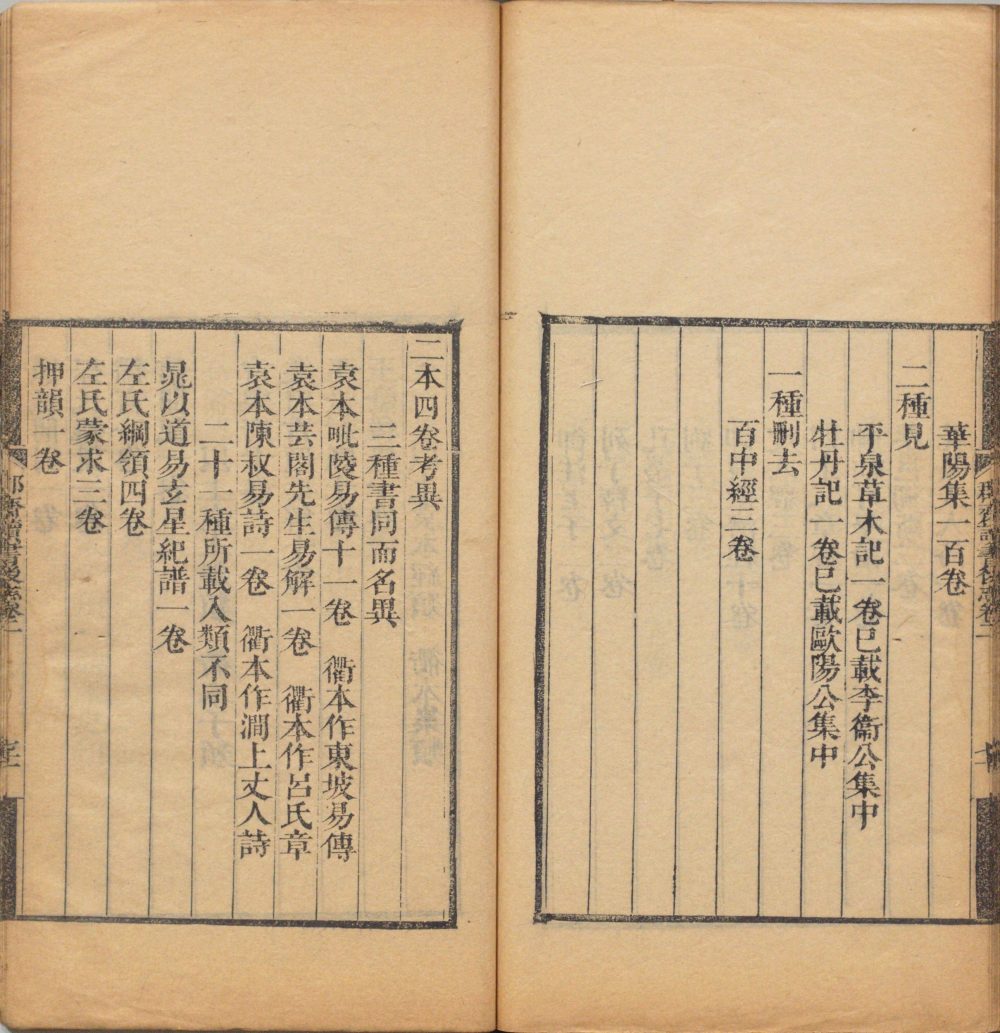 華陽集一百卷
二種見
平泉草木記一卷巳載李衞公集中
牡丹記一卷巳載歐陽公集中
一種刪去
百中經三卷
二本四卷考異
三種書同而名異
袁本毗陵易傳十一卷 衢本作東坡易傳
袁本芸閣先生易解一卷 衢本作呂氏章
袁本陳叔易詩一卷 衢本作澗上丈人詩
二十一種所載入類不同
晁以道易玄星紀譜一卷
左氏綱領四卷
左氏蒙求三卷
押韻一卷